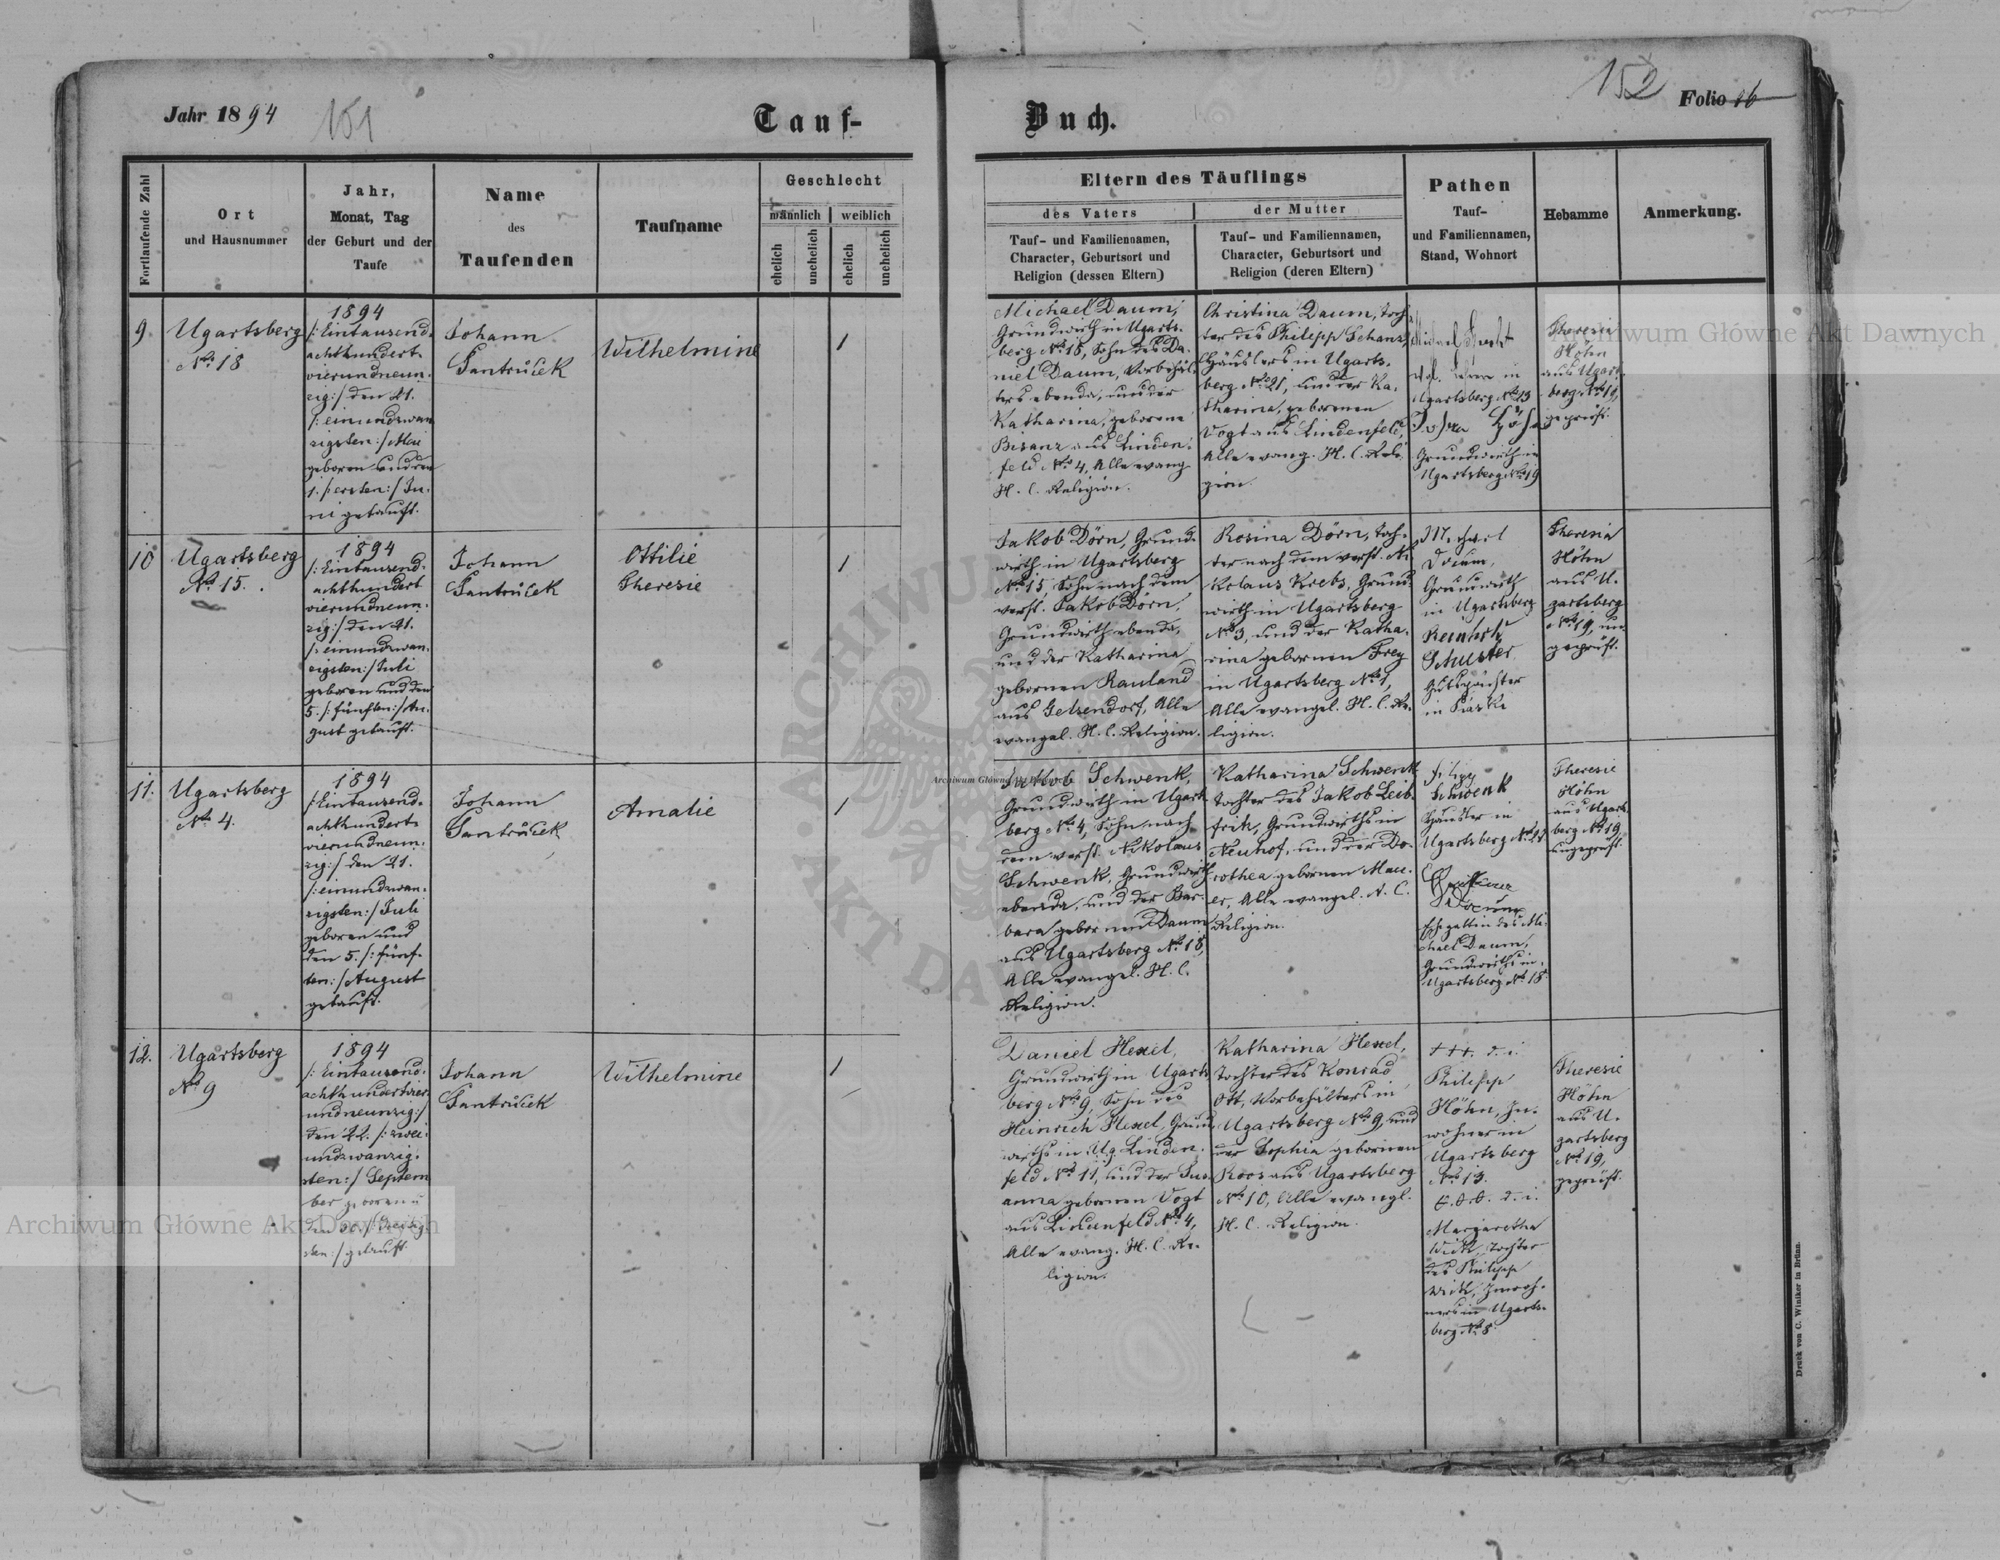 Jahr 1894
151
Tauf-
Buch.
152
Folio 16
Fortlaufende Zahl
Ort
und Hausnummer
Jahr,
Monat, Tag
der Geburt und der
Taufe
Name
des
Taufenden
Taufname
Geschlecht
männlich
weiblich
ehelich
unehelich
ehelich
unehelich
Eltern des Täuflings
des Vaters
der Mutter
Tauf- und Familiennamen,
Character, Geburtsort und
Religion (dessen Eltern)
Tauf- und Familiennamen,
Character, Geburtsort und
Religion (deren Eltern)
Pathen
Tauf-
und Familiennamen,
Stand, Wohnort
Hebamme
Anmerkung.
9.
Ugartsberg
No 18
1894
/:Eintausend-
achthundert-
vierundneun-
zig:/ den 21.
/:einundzwan
zigsten:/ Mai
geboren und den
1. /:ersten:/ Ju-
ni getauft.
Johann
Jantrůček
Wilhelmine
1
Michael Daum,
Grundwirth in Ugarts-
berg No 18, Sohn des Da-
niel Daum, Vorbehäl-
ters ebenda, und der
Katharina, geborene
Bisanz aus Linden-
feld No 4, Alle evang
H. C. Religion.
Christina Daum, Toch-
ter des Philipp Schanz,
Häuslers in Ugarts-
berg No 21, und der Ka-
tharina, geborenen
Vogt aus Lindenfeld,
Alle evang. H. C. Reli-
gion.
in
Ugartsberg No 13
Grundwirth in
Ugartsberg No 19
Theresia
Höhn
aus Ugarts-
berg No 19,
geprüft.
10
Ugartsberg
No 15.
1894
/:Eintausend-
achthundert
vierundneun-
zig:/ den 21.
/:einundzwan-
zigsten:/ Juli
geboren und den
5. /:fünften:/ Au-
gust getauft.
Johann
Jantrůček
Ottilie
Theresie
1
Jakob Dörn, Grund-
wirth in Ugartsberg
No 15, Sohn nach dem
verst. Jakob Dörn,
Grundwirth ebenda,
und der Katharina
gebornen Rauland
aus Gelsendorf, Alle
evangel. H. C. Religion.
Rosina Dörn, Toch-
ter nach dem verst. Ni-
kolaus Krebs, Grund-
wirth in Ugartsberg
No 3, und der Katha-
rina gebornen Frey
in Ugartsberg No 1,
Alle evangel. H. C. Re-
ligion.
Michael
Daum,
Grundwirth
in Ugartsberg
Reinhold
Schuster
Gutspächter
in Piaski
Theresia
Höhn
aus U-
gartsberg
No 19, un-
geprüft.
11.
Ugartsberg
No 4.
1894
/:Eintausend-
achthundert-
vierundneun-
zig:/ den 21.
/:einundzwan-
zigsten:/ Juli
geboren und
den 5. /:fünf-
ten:/ August
getauft.
Johann
Jantrůček
Amalie
1
Jakob Schwenk,
Grundwirth in Ugarts
berg No 4, Sohn nach
dem verst. Nikolaus
Schwenk, Grundwirth
ebenda, und der Bar-
bara gebornen Daum
aus Ugartsberg No 18,
Alle evangel. H. C.
Religion.
Katharina Schwenk
Tochter des Jakob Leib-
frih, Grundwirths in
Neuhof, und der Do-
rothea gebornen Mau-
er, Alle evangel. A. C.
Religion.
Filipp
Schwenk
Häusler in
Ugartsberg
Christina
Daum
Ehegattin des Mi-
chael Daum,
Grundwirths in
Ugartsberg No 18
Theresie
Höhn
aus Ugarts-
berg No 19,
ungeprüft.
12.
Ugartsberg
No 9
1894
/:Eintausend-
achthundertvier-
undneunzig:/
den 22. /:zwei-
undzwanzig-
sten:/ Septem
ber geboren u
den 30. /:dreißig
sten:/ getauft.
Johann
Jantrůček
Wilhelmine
1
Daniel Hexel,
Grundwirth in Ugarts
berg No 9, Sohn des
Heinrich Hexel, Grund-
wirths in Ug. Linden-
feld No 11, und der Sus-
anna gebornen Vogt
aus Lindenfeld No 4,
Alle evang. H. C. Re-
ligion.
Katharina Hexel,
Tochter des Konrad
Ott, Vorbehälters in
Ugartsberg No 9, und
der Sophia gebornen
Roos aus Ugartsberg
No 10, Alle evangel.
H. C. Religion.
+++ d. i.
Philipp
Höhn, In-
wohner in
Ugartsberg
No 13.
d. i.
Margaretha
Wick, Tochter
des Philipp
Wick, Inwoh-
ners in Ugarts-
berg No 8.
Theresie
Höhn
aus U-
gartsberg
No 19,
geprüft.
Druck von C. Winiker in Brünn.
Archiwum Główne Akt Dawnych
Archiwum Główne Akt Dawnych
Archiwum Główne Akt Dawnych
ARCHIWUM
AKT DAW